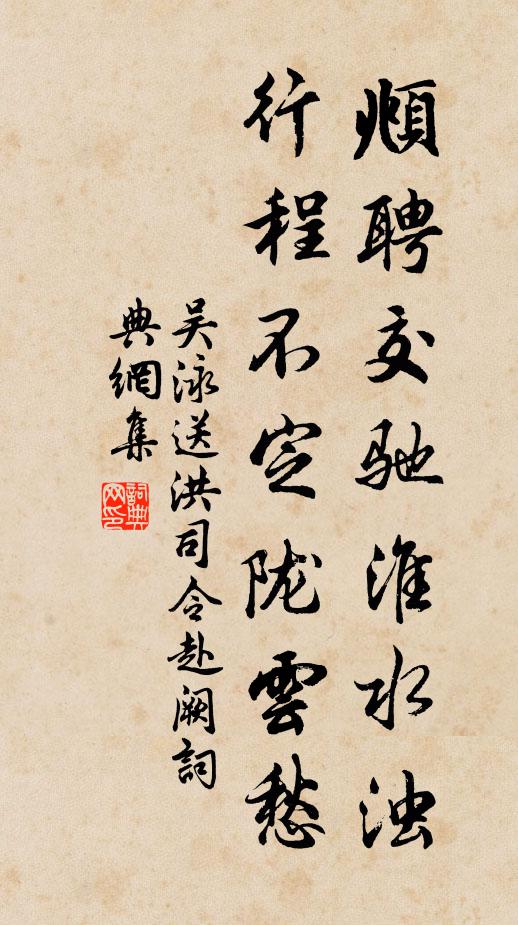 頫聘交驰淮水浊
行程不定陇雲愁
吴泳送洪司令赴阙詞
典網集
詞典
网印